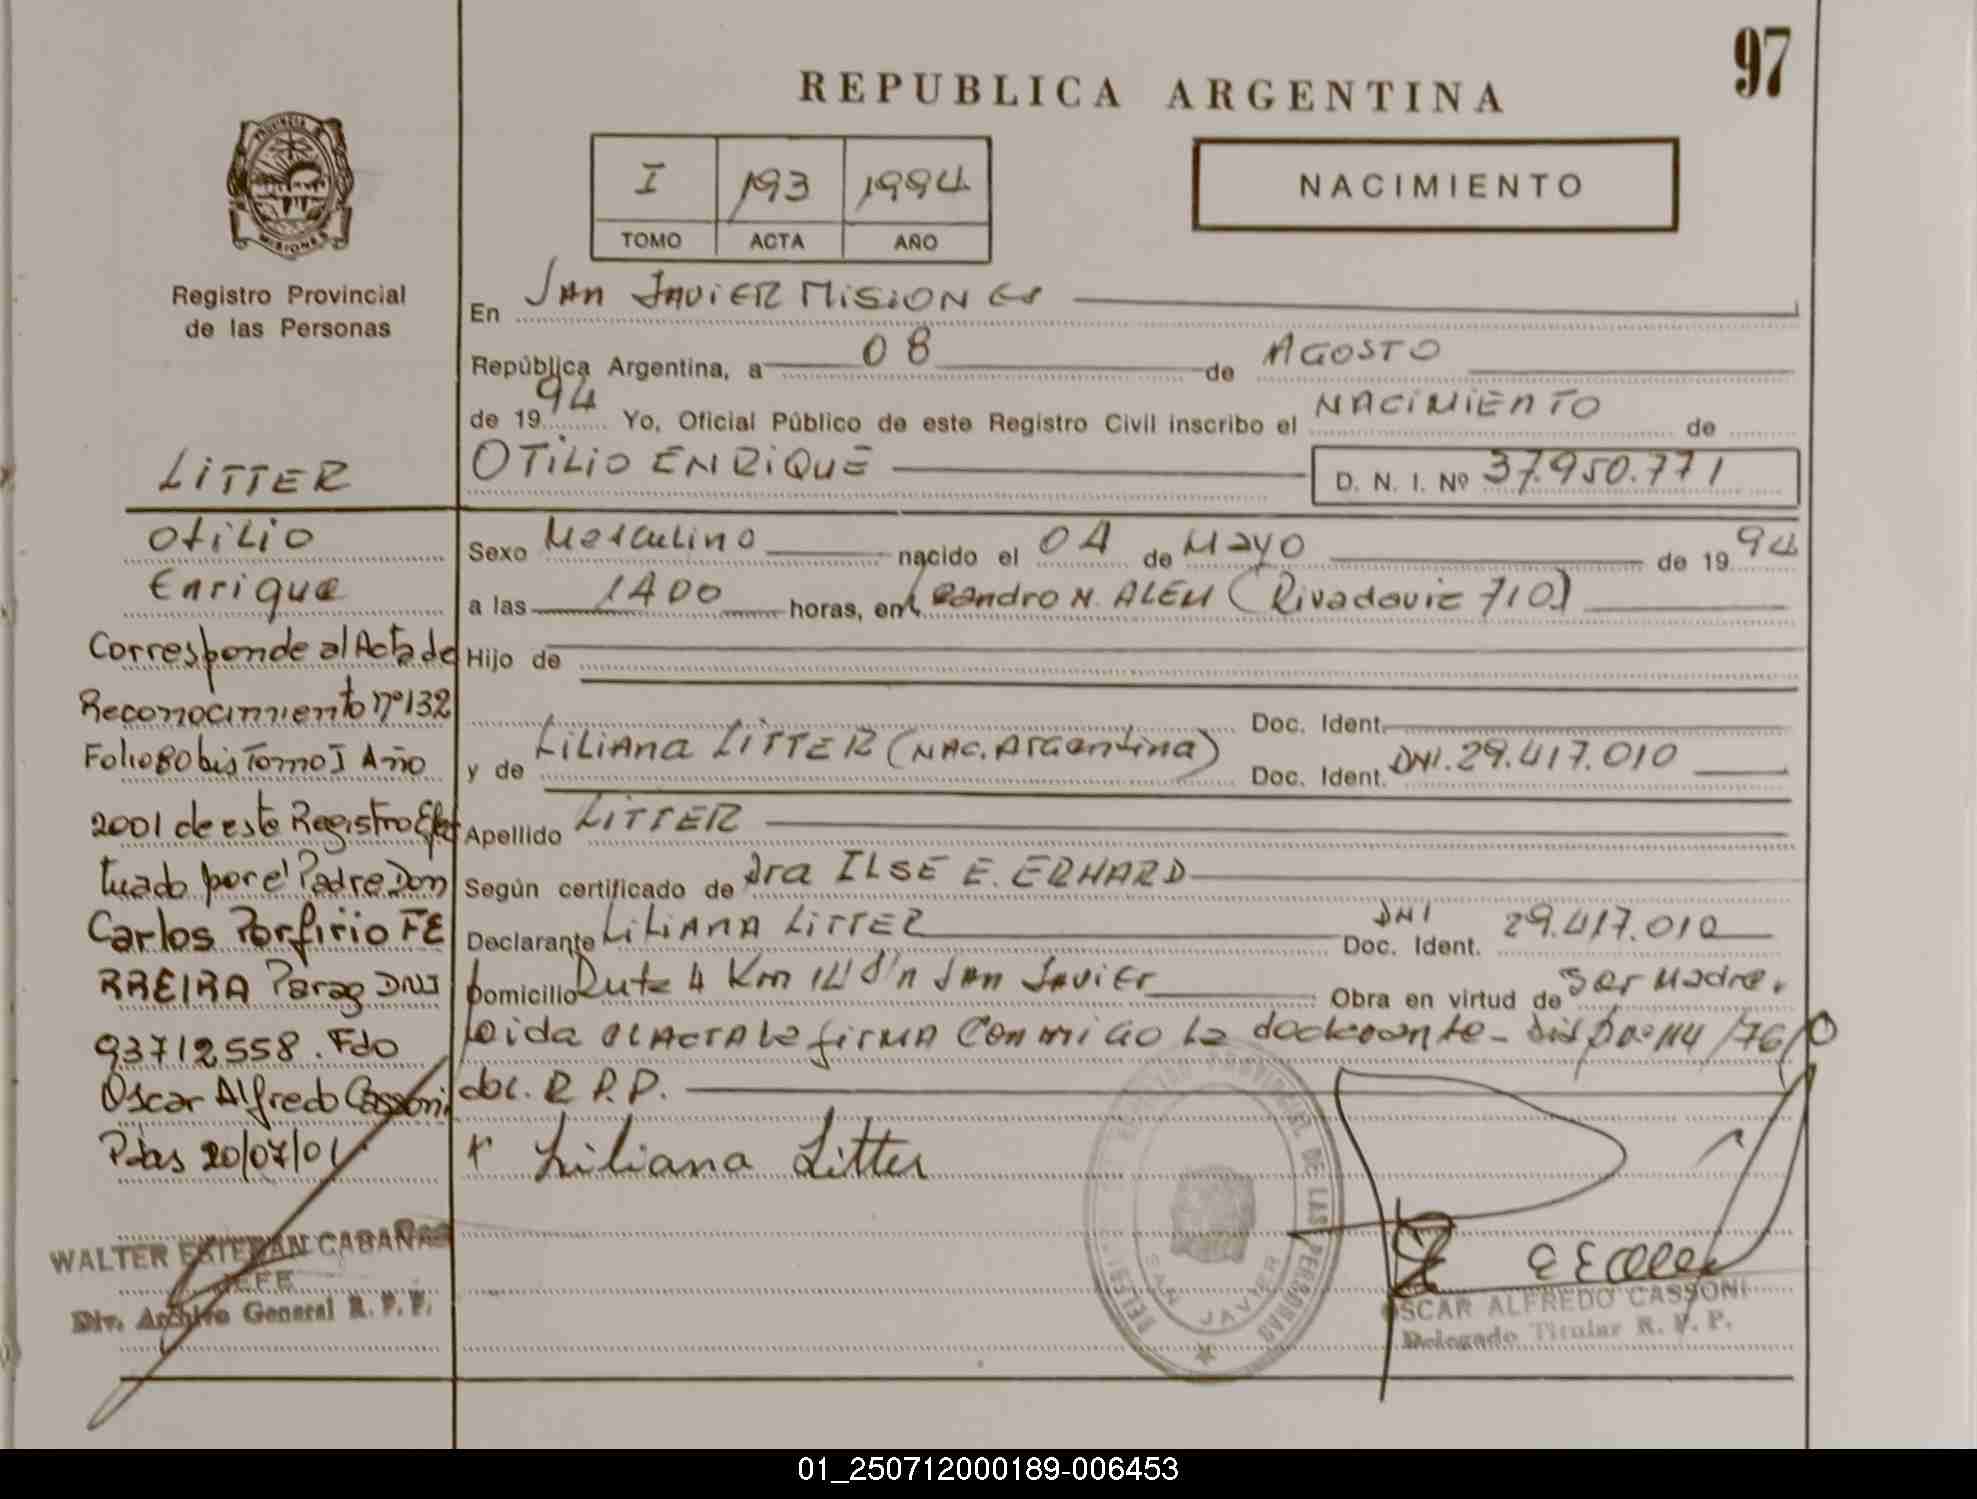 97
REPUBLICA ARGENTINA
I 193 1994
TOMO ACTA AÑO
NACIMIENTO
PROVINCIA DE
MISIONES
Registro Provincial
de las Personas
En San Javier Misiones
República Argentina, a 08 de Agosto
de 1994 Yo, Oficial Público de este Registro Civil inscribo el Nacimiento de
Otilio Enrique D. N. I. Nº 37.950.771
Sexo Masculino nacido el 04 de Mayo de 1994
a las 1400 horas, en Leandro N. Alem (Rivadavia 710)
Hijo de
Doc. Ident.
y de Liliana Litter (Nac. Argentina) Doc. Ident. DNI. 29.417.010
Apellido Litter
Según certificado de Dra Ilse E. Erhard
Declarante Liliana Litter Doc. Ident. DNI 29.417.010
Domicilio Ruta 4 Km 14 S/n San Javier Obra en virtud de Ser Madre.
Leida el Acta la firma Conmigo la declarante - Disp nº 114/76
doc. R.P.P.
x Liliana Litter
LITTER
Otilio
Enrique
Corresponde al Acta de
Reconocimiento nº 132
Folio 80 bis Tomo I Año
2001 de este Registro Efec
tuado por el Padre Don
Carlos Porfirio FE
RREIRA Parag DNI
93712558. Fdo
Oscar Alfredo Cassoni
Pdas 20/07/01
WALTER ESTEBAN CABAÑAS
JEFE
Div. Archivo General R. P. P.
REGISTRO PROVINCIAL DE LAS PERSONAS
SAN JAVIER
OSCAR ALFREDO CASSONI
Delegado Titular R. P. P.
01_250712000189-006453